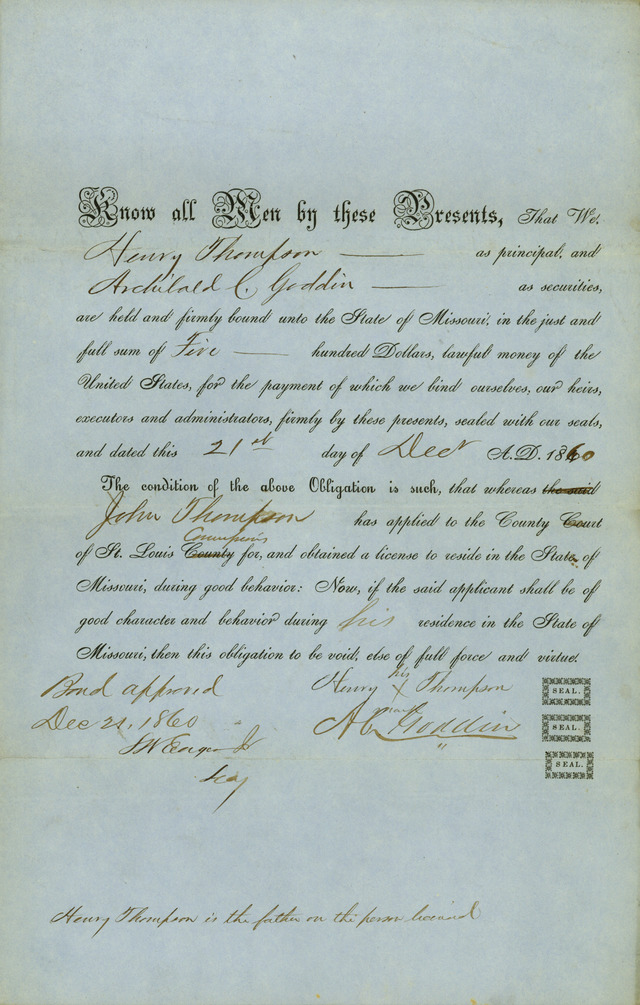 Know all Men by these Presents, That We,
Henry Thompson as principal, and
Archibald C. Goddin as securities,
are held and firmly bound unto the State of Missouri, in the just and
full sum of Five hundred Dollars, lawful money of the
United States, for the payment of which we bind ourselves, our heirs,
executors and administrators, firmly by these presents, sealed with our seals,
and dated this 21st day of Decr A.D. 1860
The condition of the above Obligation is such, that whereas the said
John Thompson has applied to the County Court
of St. Louis County for, and obtained a license to reside in the State of
Missouri, during good behavior: Now, if the said applicant shall be of
good character and behavior during his residence in the State of
Missouri, then this obligation to be void, else of full force and virtue.
his
Henry X Thompson SEAL.
mark
A C Goddin SEAL.
SEAL.
Bond approved
Dec 21, 1860
Secy
Henry Thompson is the father on the person licensed